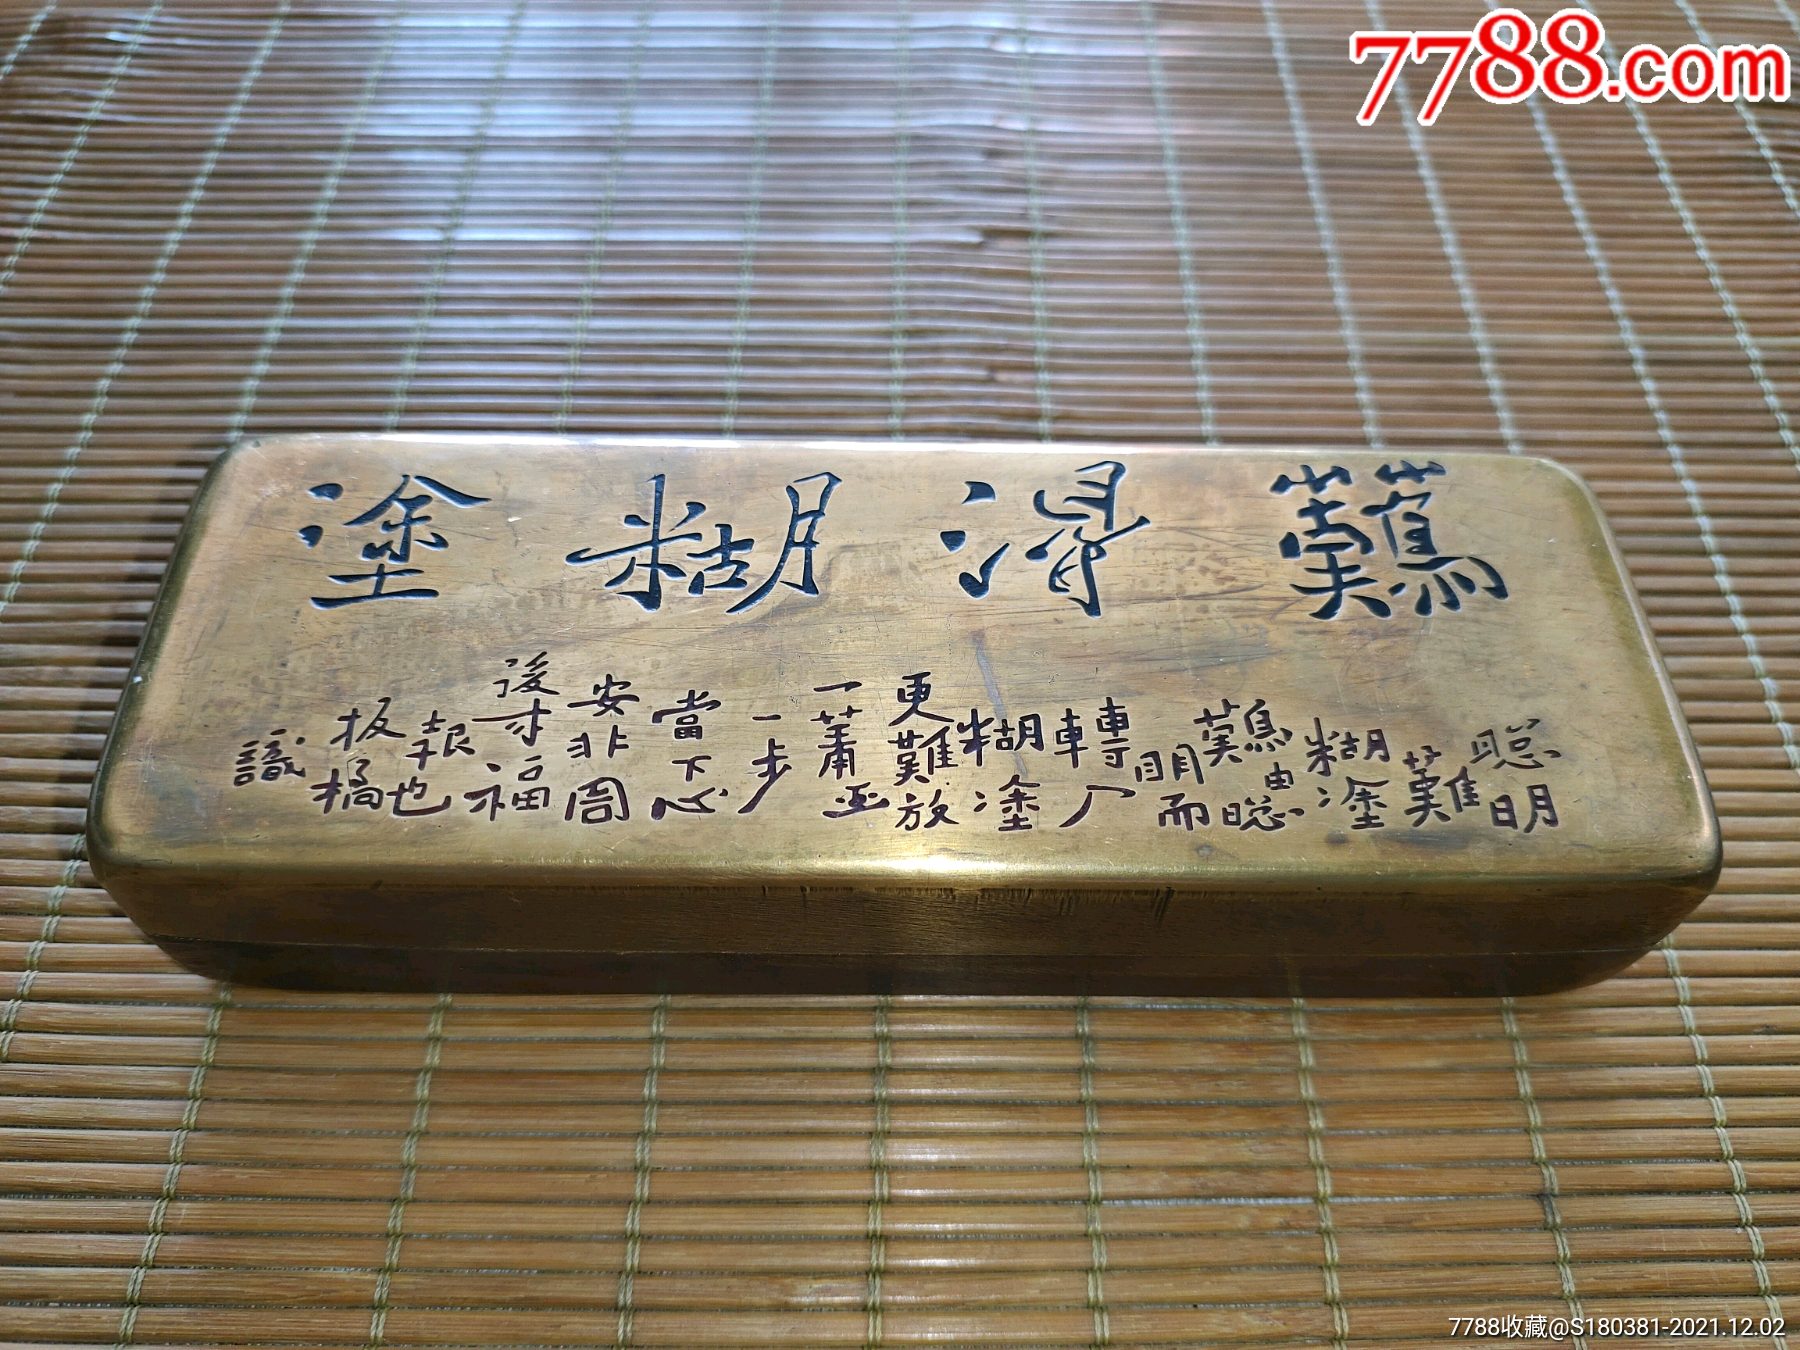 7788.com
難得糊塗
聰明
難
糊塗
難由聰
明而
轉入
糊塗
更難放
一著退
一步
當下心
安非圖
後來福
報也
板橋
識
7788收藏@S180381-2021.12.02